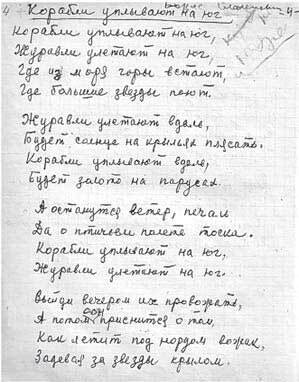 4
Корабли уплывают на юг
Корабли уплывают на юг,
Журавли улетают на юг,
Где из моря горы встают,
Где большие звезды поют.
Журавли улетают вдаль,
Будет солнце на крыльях плясать.
Корабли уплывают вдаль,
Будет золото на парусах.
А останутся ветер, печаль
Да о птичьем полете тоска.
Корабли уплывают на юг,
Журавли улетают на юг.
Выйди вечером их провожать,
А потом приснится о том,
Как летит под нордом вожак,
Задевая за звезды крылом.